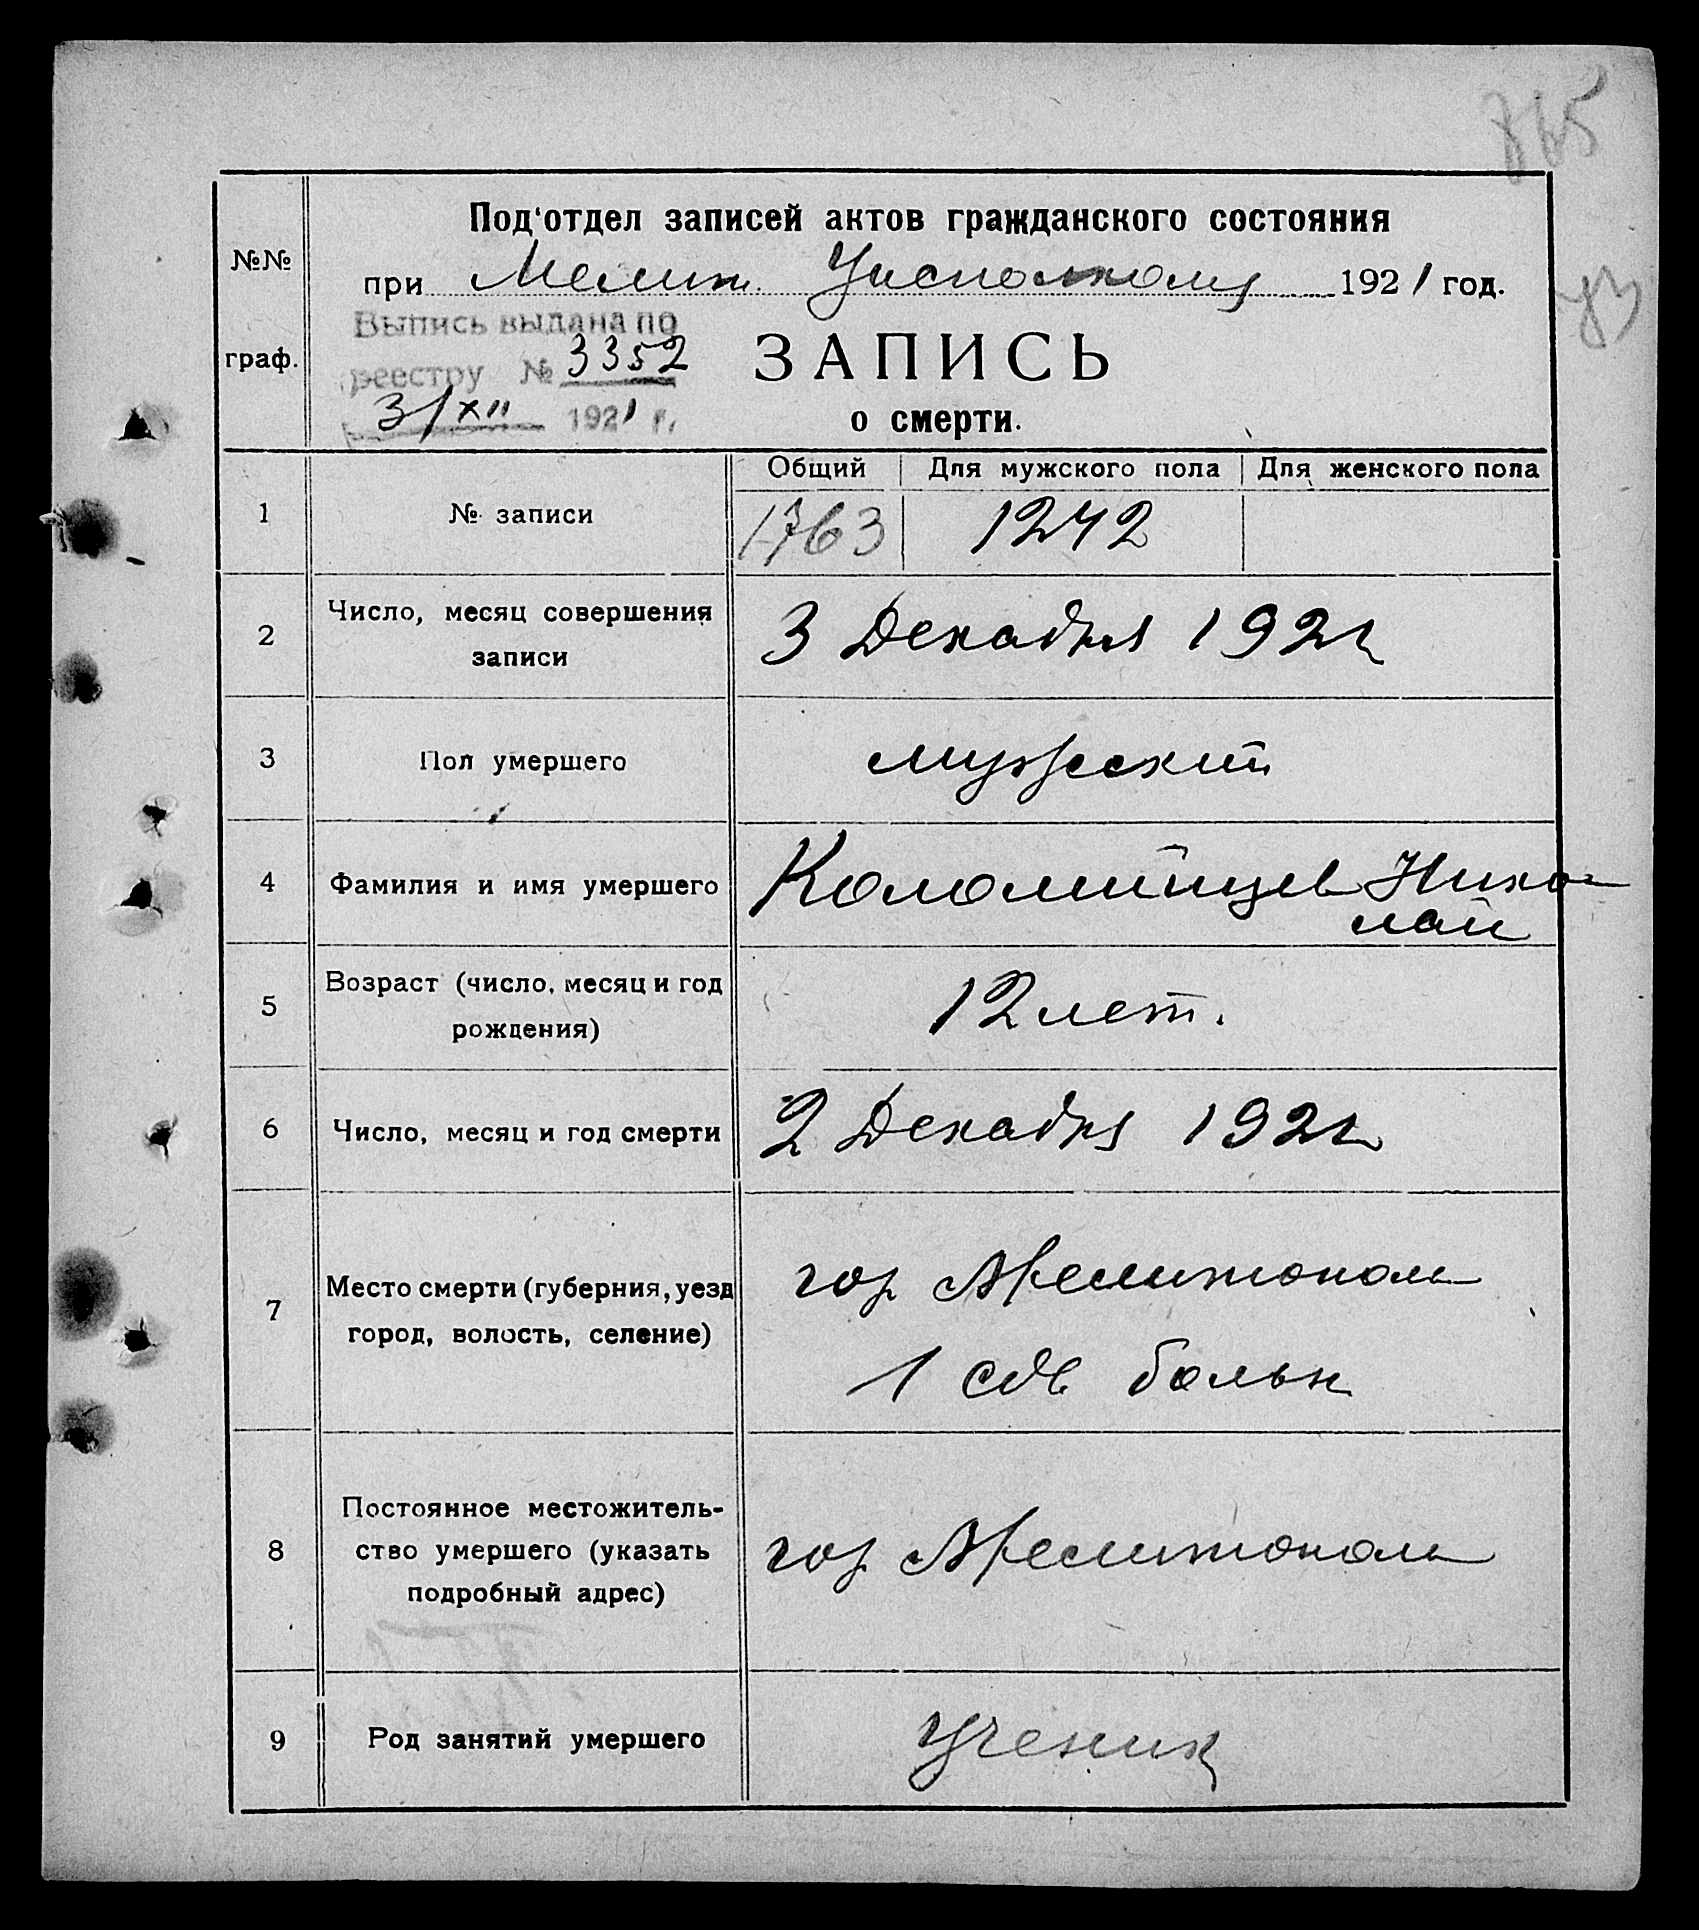 865
Под'отдел записей актов гражданского состояния
№№
при Мелит. Уисполкому 1921 год.
граф.
Выпись выдана по
реестру № 3352
31/XII 1921 г.
ЗАПИСЬ
о смерти.
Общий Для мужского пола Для женского пола
1 № записи 1763 1242
2 Число, месяц совершения
записи
3 Декабря 1921
3 Пол умершего мужеский
4 Фамилия и имя умершего Коломийцев Нико-
лай
5 Возраст (число, месяц и год
рождения)
12 лет.
6 Число, месяц и год смерти 2 Декабря 1921
7 Место смерти (губерния, уезд
город, волость, селение)
гор Мелитополь
1 сов больн
8 Постоянное местожитель-
ство умершего (указать
подробный адрес)
гор Мелитополь
9 Род занятий умершего Ученик